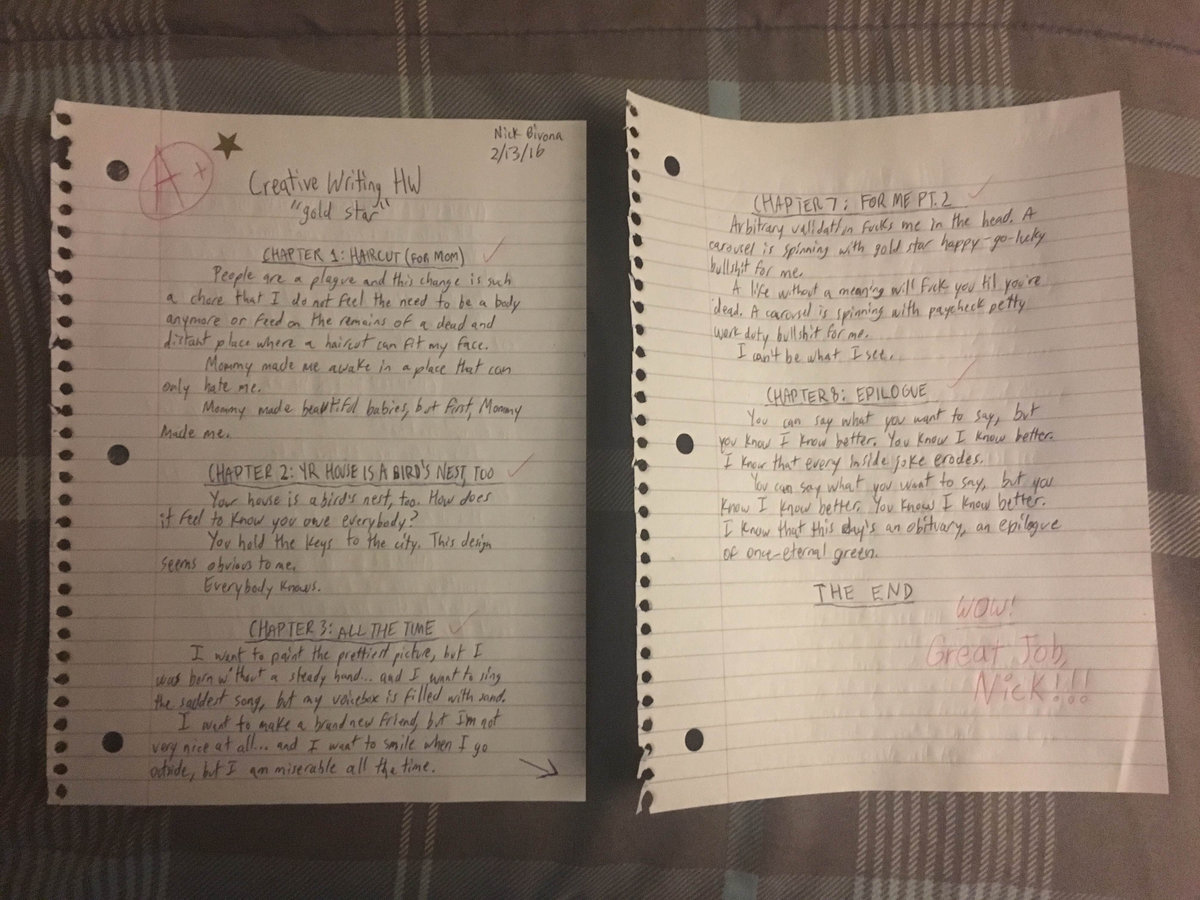 A+
Nick Bivona
2/13/16
Creative Writing HW
"gold star"
CHAPTER 1: HAIRCUT (FOR MOM)
People are a plague and this change is such
a chore that I do not feel the need to be a body
anymore or feed on the remains of a dead and
distant place where a haircut can fit my face.
Mommy made me awake in a place that can
only hate me.
Mommy made beautiful babies, but first, Mommy
made me.
CHAPTER 2: YR HOUSE IS A BIRD'S NEST, TOO
Your house is a bird's nest, too. How does
it feel to know you owe everybody?
You hold the keys to the city. This design
seems obvious to me.
Everybody knows.
CHAPTER 3: ALL THE TIME
I want to paint the prettiest picture, but I
was born without a steady hand... and I want to sing
the saddest song, but my voicebox is filled with sand.
I want to make a brand new friend, but I'm not
very nice at all... and I want to smile when I go
outside, but I am miserable all the time.
CHAPTER 7: FOR ME PT. 2
Arbitrary validation fucks me in the head. A
carousel is spinning with gold star happy-go-lucky
bullshit for me.
A life without a meaning will fuck you til you're
dead. A carousel is spinning with paycheck petty
work duty bullshit for me.
I can't be what I see.
CHAPTER 8: EPILOGUE
You can say what you want to say, but
you know I know better. You know I know better.
I know that every inside joke erodes.
You can say what you want to say, but you
know I know better. You know I know better.
I know that this day's an obituary, an epilogue
of once-eternal green.
THE END
WOW!
Great Job,
Nick!!!